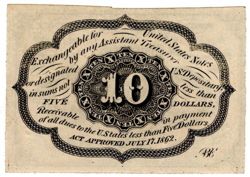 Exchangeable for United States Notes
by any Assistant Treasurer
or designated U.S. Depositary
in sums not less than
FIVE DOLLARS.
10
Receivable in payment
of all dues to the U. States less than Five Dollars.
ACT APPROVED JULY 17, 1862.